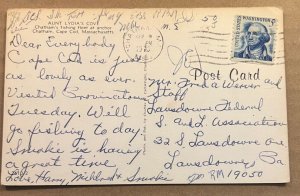 AUNT LYDIA'S COVE
Chatham's fishing fleet at anchor
Chatham, Cape Cod, Massachusetts.
Dear Everybody
Cape Cod is just
as lovely as ever.
Visited Provincetown
Tuesday. Will
go fishing to day
Smokie is having
a great time
Love, Harry, Mildred & Smokie
WASHINGTON
5¢
Post Card
Mr. Fred A Werner and
Staff
Lansdowne Federal
S and L. Association
32 S. Lansdowne Ave
Lansdowne, Pa
RM 19050